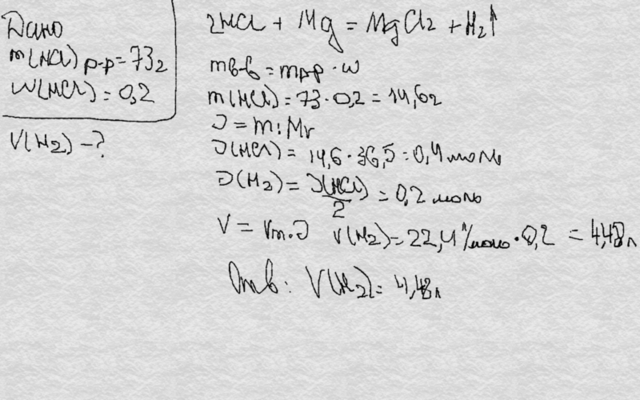 Дано
m(HCl) р-р = 73г
W(HCl) = 0,2
V(H2) - ?
2HCl + Mg = MgCl2 + H2↑
mв-в = mр-р · w
m(HCl) = 73 · 0,2 = 14,6г
ν = m : Mr
ν(HCl) = 14,6 · 36,5 = 0,4 моль
ν(H2) = ν(HCl)/2 = 0,2 моль
V = Vm · ν V(H2) = 22,4 л/моль · 0,2 = 4,48л
Отв: V(H2) = 4,48л